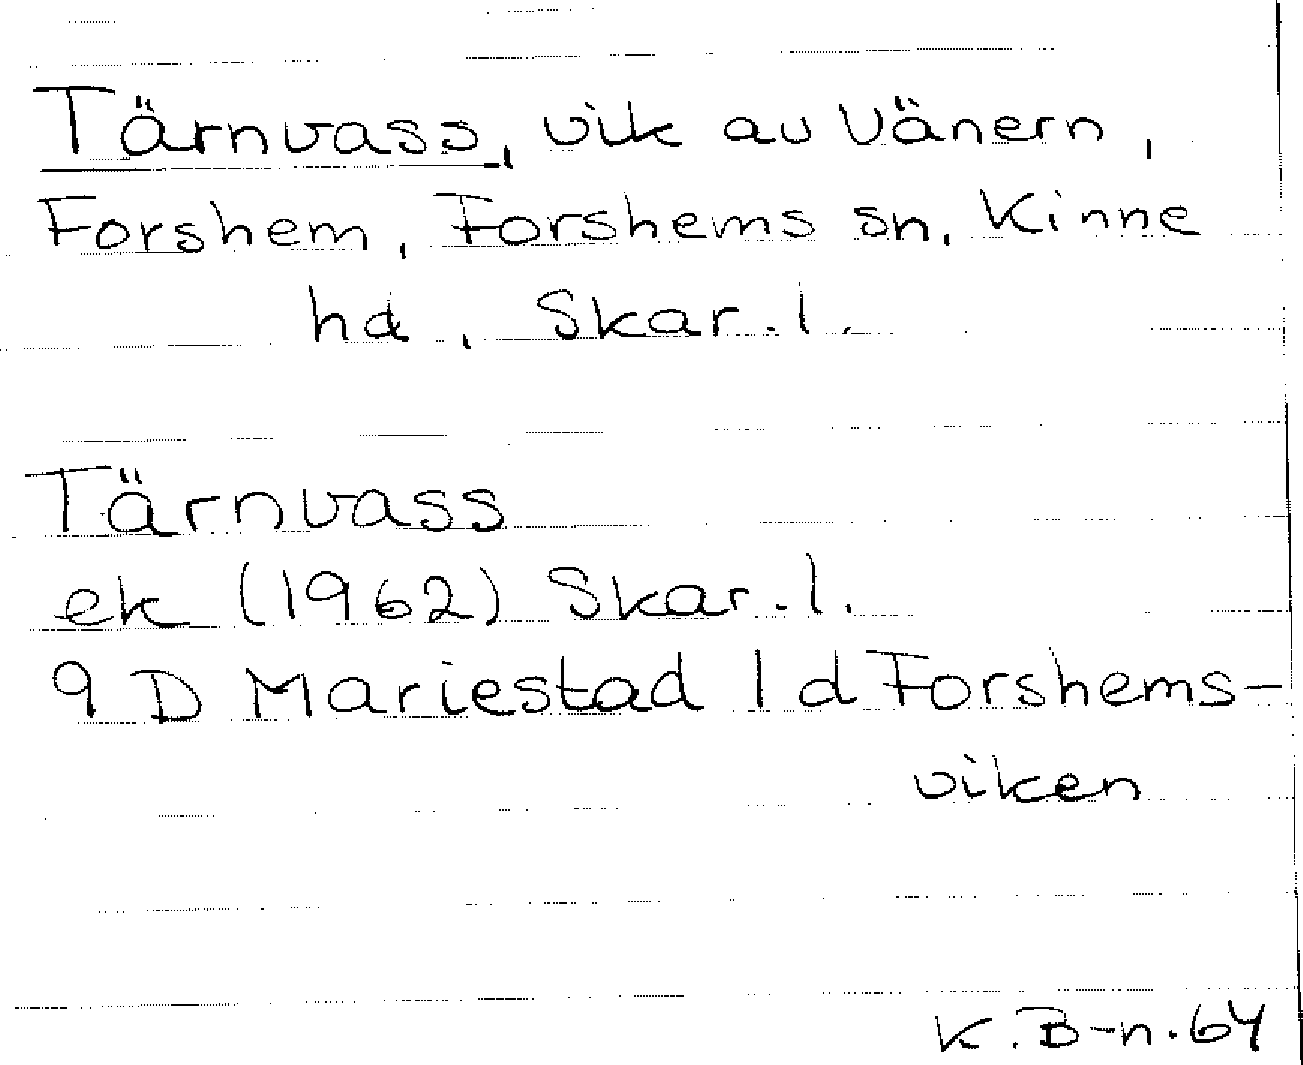 Tärnvass, vik av Vänern,
Forshem, Forshems sn, Kinne
hd, Skar. l.
Tärnvass
ek (1962) Skar. l.
9 D Mariestad 1 d Forshems-
viken
K. B-n. 64